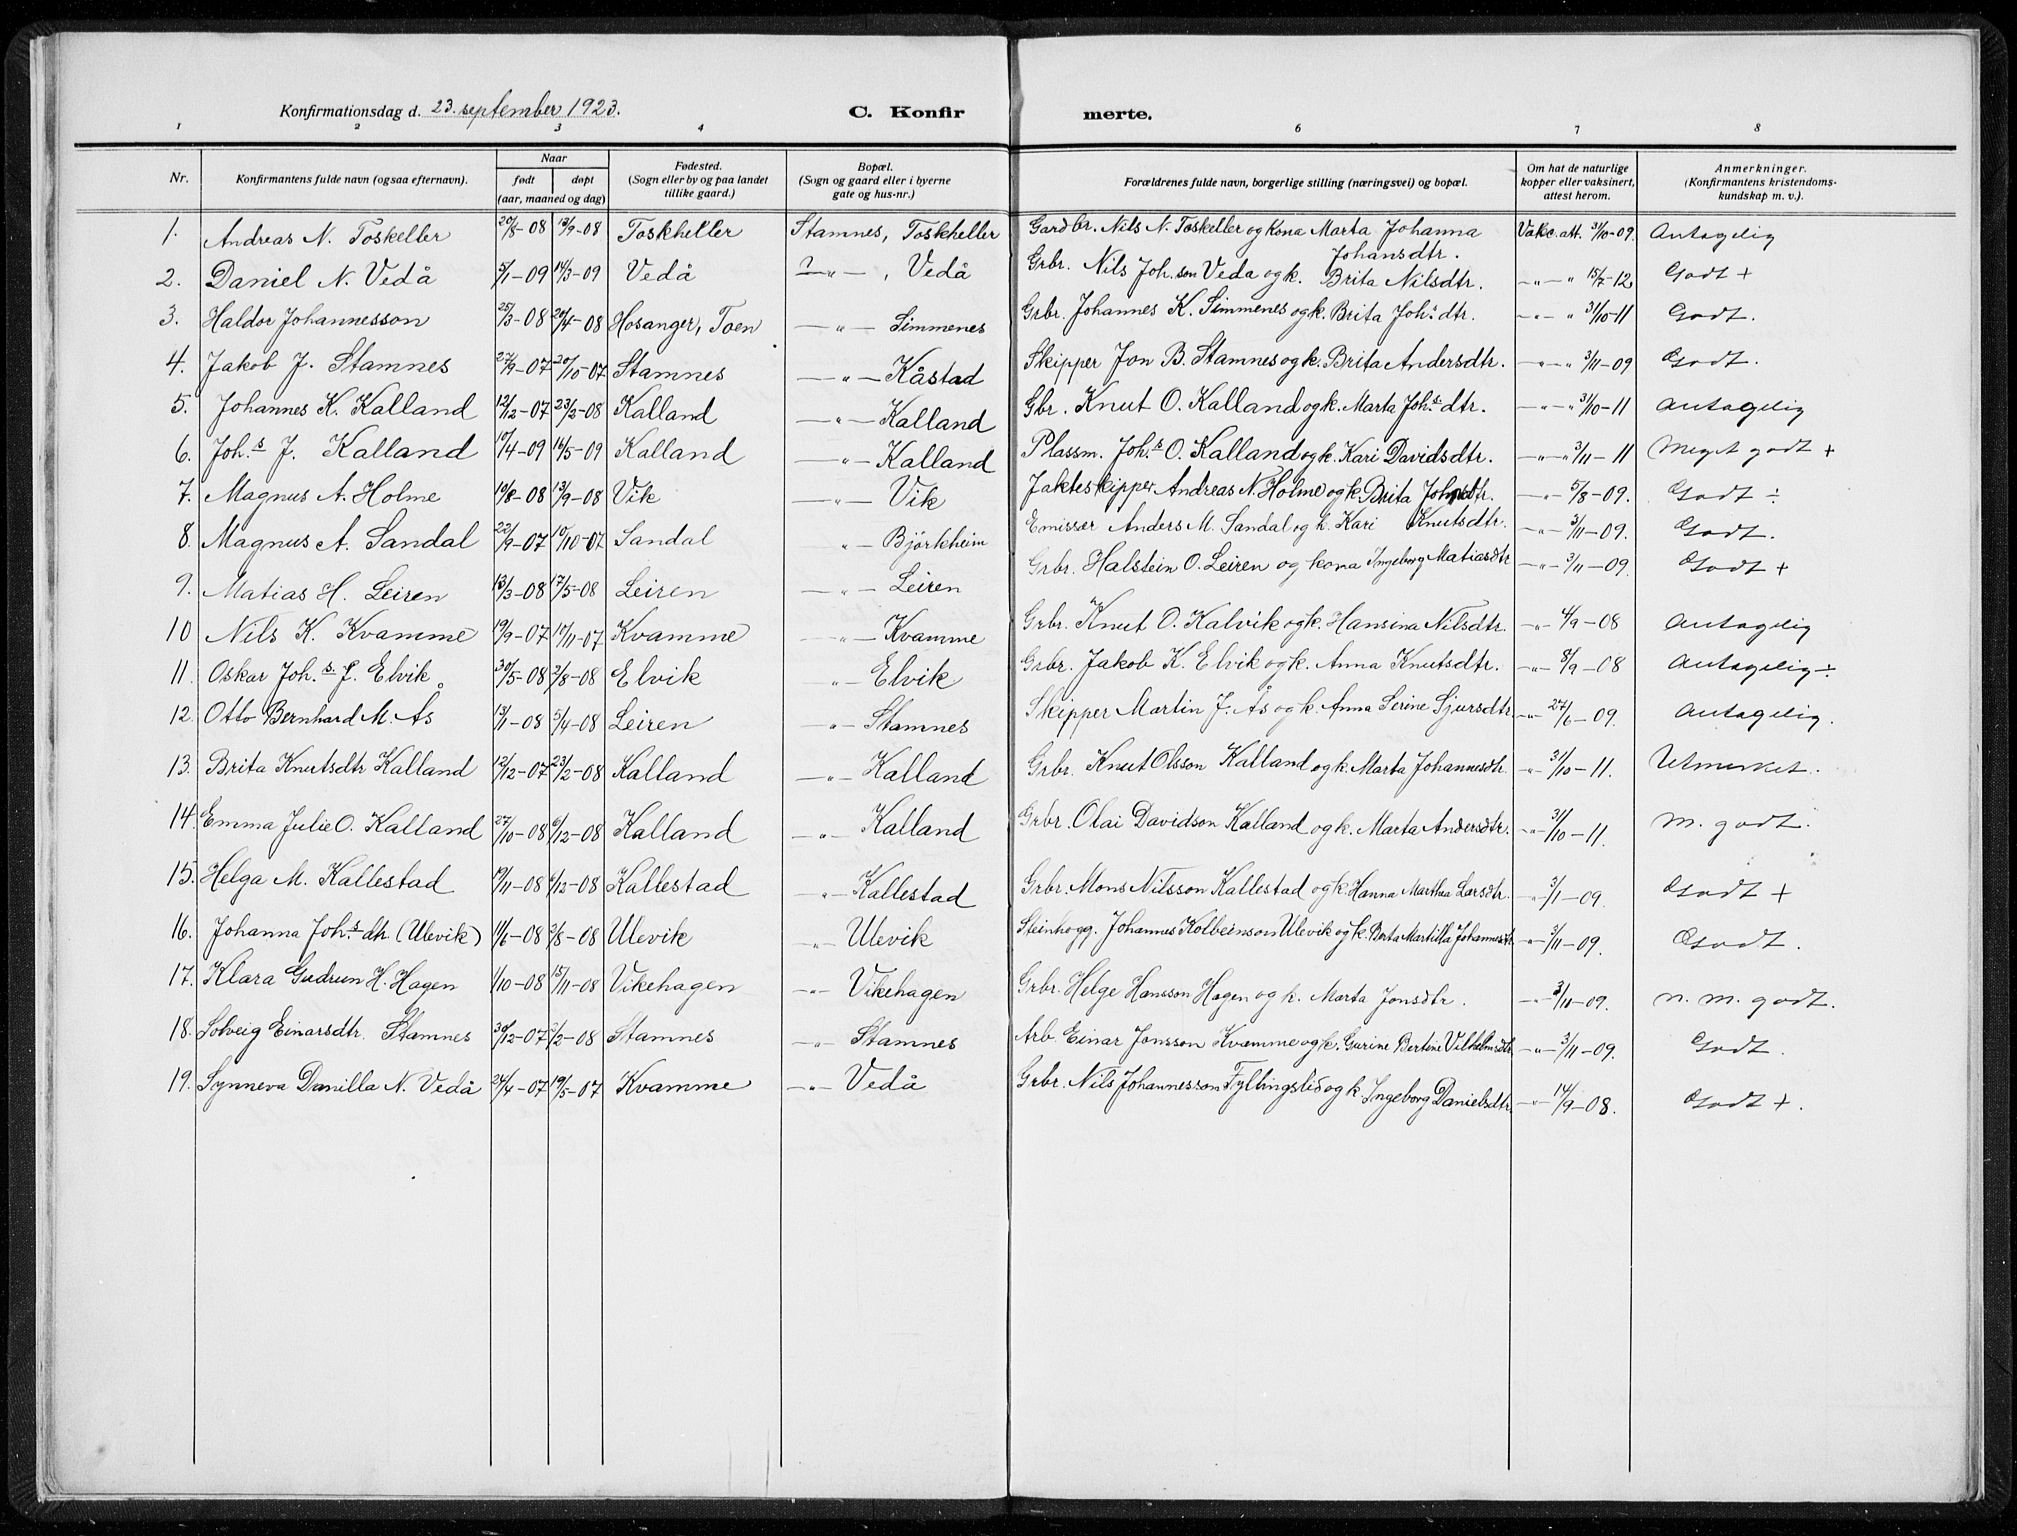 Konfirmationsdag d. 23. september 1923. C. Konfirmerte.
1 2 3 4 6 7 8
Nr. Konfirmantens fulde navn (ogsaa efternavn). Naar født døpt (aar, maaned og dag) Fødested. (Sogn eller by og paa landet tillike gaard.) Bopæl. (Sogn og gaard eller i byerne gate og hus-nr.) Forældrenes fulde navn, borgerlige stilling (næringsvei) og bopæl. Om hat de naturlige kopper eller vaksinert, attest herom. Anmerkninger. (Konfirmantens kristendomskundskap m. v.).
1. Andreas N. Toskeller 20/8-08 13/9-08 Toskheller Stamnes, Toskheller Gardbr. Nils N. Toskeller og kona Marta Johanna Johansdtr. Vakc. att. 3/10-09. Antagelig
2. Daniel N. Vedå 5/1-09 14/3-09 Vedå —"— , Vedå Grbr. Nils Joh.son Veda og k. Brita Nilsdtr. —"— " 15/7-12 Godt +
3. Haldor Johannesson 25/3-08 20/4-08 Hosanger, Toen —"— Simmenes Grbr. Johannes K. Simmenes og k. Brita Joh.s dtr. —"— " 31/10-11 Godt.
4. Jakob J. Stamnes 27/9-07 20/10-07 Stamnes —"— Kåstad Skipper Jon B. Stamnes og k. Brita Andersdtr. —"— 3/11-09 Godt.
5. Johannes K. Kalland 12/12-07 23/2-08 Kalland —"— Kalland Gbr. Knut O. Kalland og k. Marta Joh.s dtr. —"— " 31/10-11 Antagelig
6. Joh.s J. Kalland 10/4-09 16/5-09 Kalland —"— Kalland Plassm. Joh.s O. Kalland og k. Kari Davidsdtr. —"— " 3/11-11 Meget godt +
7. Magnus A. Holme 10/8-08 13/9-08 Vik —"— Vik Jakteskipper Andreas N. Holme og k. Brita Johnsdtr. —"— 5/8-09. Godt ÷
8. Magnus A. Sandal 22/9-07 10/10-07 Sandal —"— Björkheim Emissær Anders M. Sandal og k. Kari Knutsdtr. —"— 3/11-09. Godt.
9. Matias H. Leiren 13/3-08 17/5-08 Leiren —"— Leiren Grbr. Halstein O. Leiren og kona Ingeborg Matiasdtr —"— 3/11-09. Godt +
10 Nils K. Kvamme 19/9-07 10/11-07 Kvamme —"— Kvamme Grbr. Knut O. Kalvik og k. Hansina Nilsdtr. —"— 4/9-08 Antagelig
11. Oskar Joh.s J. Elvik 30/5-08 2/8-08 Elvik —"— Elvik Grbr. Jakob K. Elvik og k. Anna Knutsdtr. —"— 8/9-08 Antagelig ÷
12. Otto Bernhard M. Ås 13/1-08 5/4-08 Leiren —"— Stamnes Skipper Martin J. Ås og k. Anna Serine Sjursdtr. —"— 27/6-09. Antagelig.
13. Brita Knutsdtr Kalland 12/12-07 23/2-08 Kalland —"— Kalland Grbr. Knut Olsson Kalland og k. Marta Johannesdtr. —"— 31/10-11. Utmerket.
14. Emma Julie O. Kalland 27/10-08 6/12-08 Kalland —"— Kalland Grbr. Olai Davidson Kalland og k. Marta Andersdtr. —"— 31/10-11. M. godt.
15. Helga M. Kallestad 19/11-08 6/12-08 Kallestad —"— Kallestad Grbr. Mons Nilsson Kallestad og k. Hanna Marthea Larsdtr. —"— 3/1-09. Godt +
16. Johanna Joh.s dtr. (Ulevik) 11/6-08 2/8-08 Ulevik —"— Ulevik Steinhogg. Johannes Kolbeinson Ulevik og k. Berta Martilla Johannesdtr. —"— 3/11-09. Godt.
17. Klara Gudrun H. Hagen 1/10-08 15/11-08 Vikehagen —"— Vikehagen Grbr. Helge Hansson Hagen og k. Marta Jonsdtr. —"— 3/11-09. n. m. godt.
18. Solveig Einarsdtr. Stamnes 30/12-07 2/2-08 Stamnes —"— Stamnes Arb. Einar Jonsson Kvamme og k. Gurine Bertine Vilhelmsdtr. —"— 3/11-09. Godt.
19. Synneva Danilla N. Vedå 24/4-07 19/5-07 Kvamme —"— Vedå Grbr. Nils Johannesson Fyllingslid og k. Ingeborg Danielsdtr. —"— 14/9-08. Godt +.